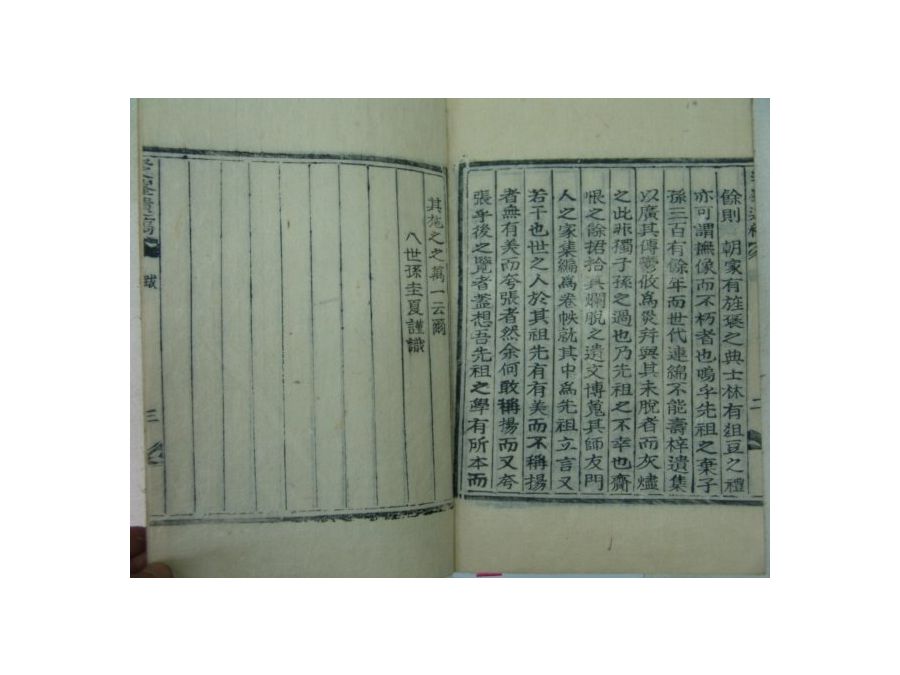 餘則 朝家有旌褒之典士林有俎豆之禮
亦可謂撫像而不朽者也嗚乎先祖之棄子
孫三百有餘年而世代連綿不能壽梓遺集
以廣其傳鬱攸為災并與其未脫者而灰燼
之此非獨子孫之過也乃先祖之不幸也齎
恨之餘捃拾其爛脫之遺文博蒐其師友門
人之家集編為卷帙就其中為先祖立言又
若干也世之人於其祖先有有美而不稱揚
者無有美而夸張者然余何敢稱揚而又夸
張乎後之覽者蓋想吾先祖之學有所本而
其施之之萬一云爾
八世孫圭夏謹識
跋
三
二